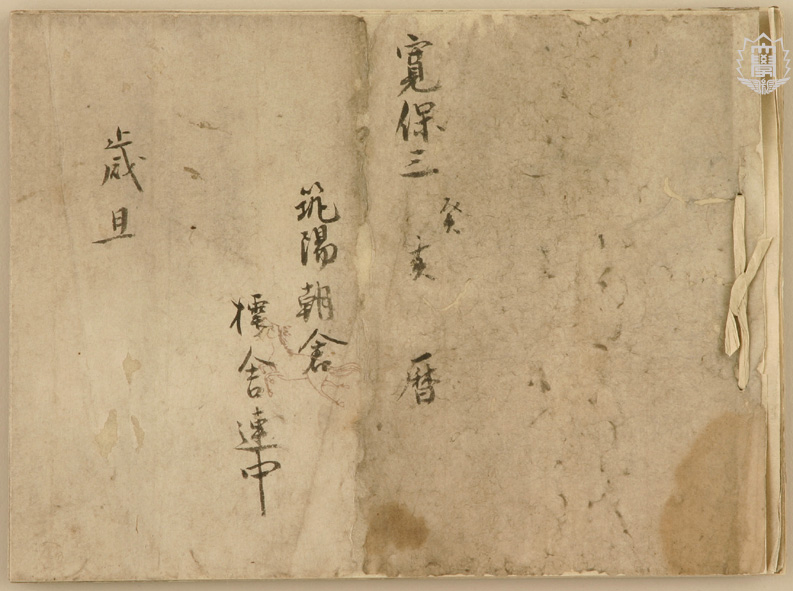 寛保三癸亥暦
筑陽朝倉
樗舎連中
歳旦